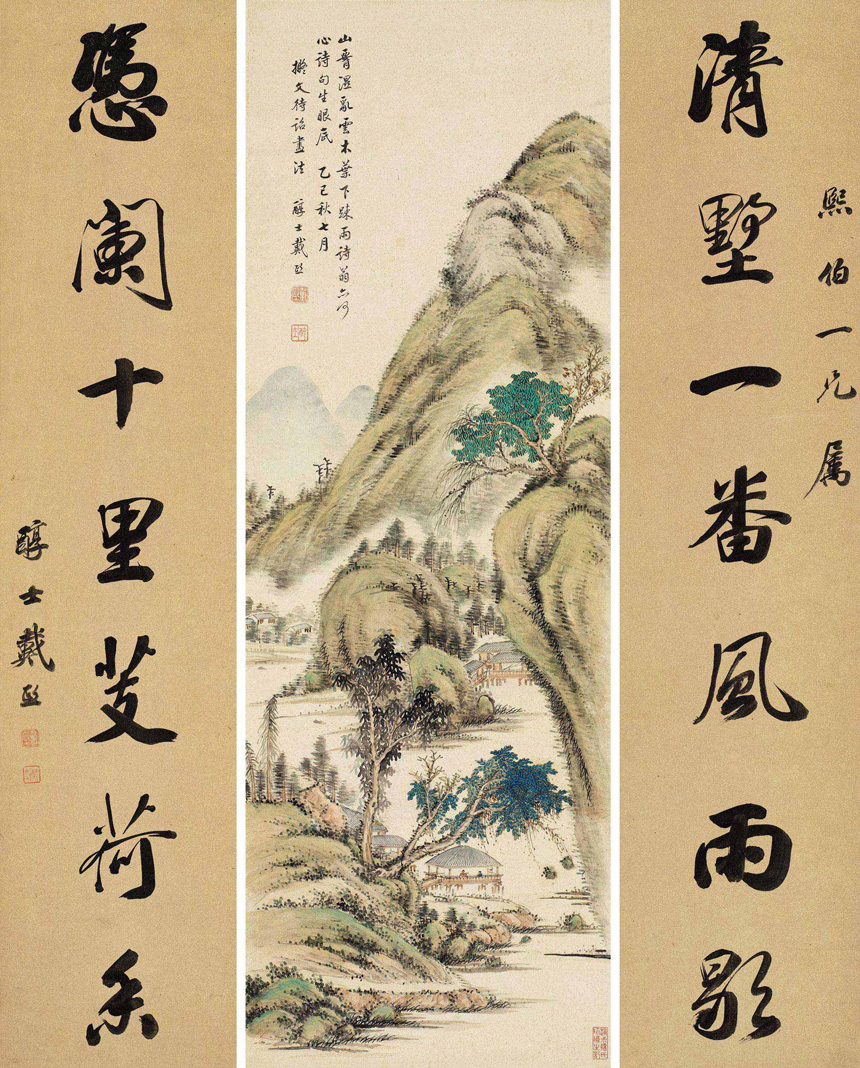 熙伯一兄屬
清墅一番風雨歇
山脊溼亂雲木葉下踈雨詩翁亦何
心詩句生眼底 乙巳秋七月
擬文待詔畫法 醇士戴熙
憑闌十里芰荷香
醇士戴熙